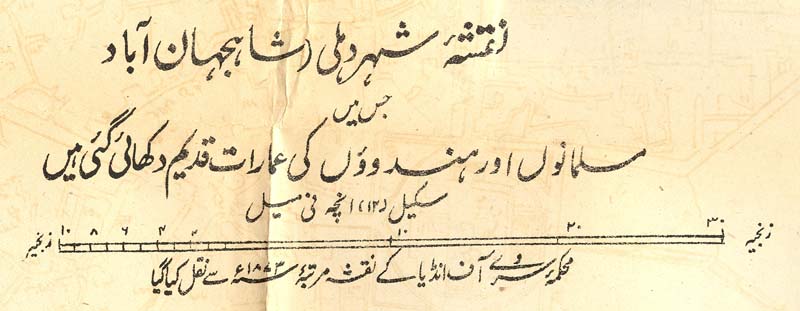 نقشۂ شہر دہلی (شاہجہان آباد
جس میں
مسلمانوں اور ہندوؤں کی عمارات قدیم دکھائی گئی ہیں
سکیل (۱۲) انچہ فی میل
زنجیر ۱۰ ۸ ۶ ۴ ۲ ۱۰ ۲۰ ۳۰ زنجیر
محکمۂ سروے آف انڈیا کے نقشہ مرتبۂ سنہ ۱۸۷۳ء سے نقل کیا گیا